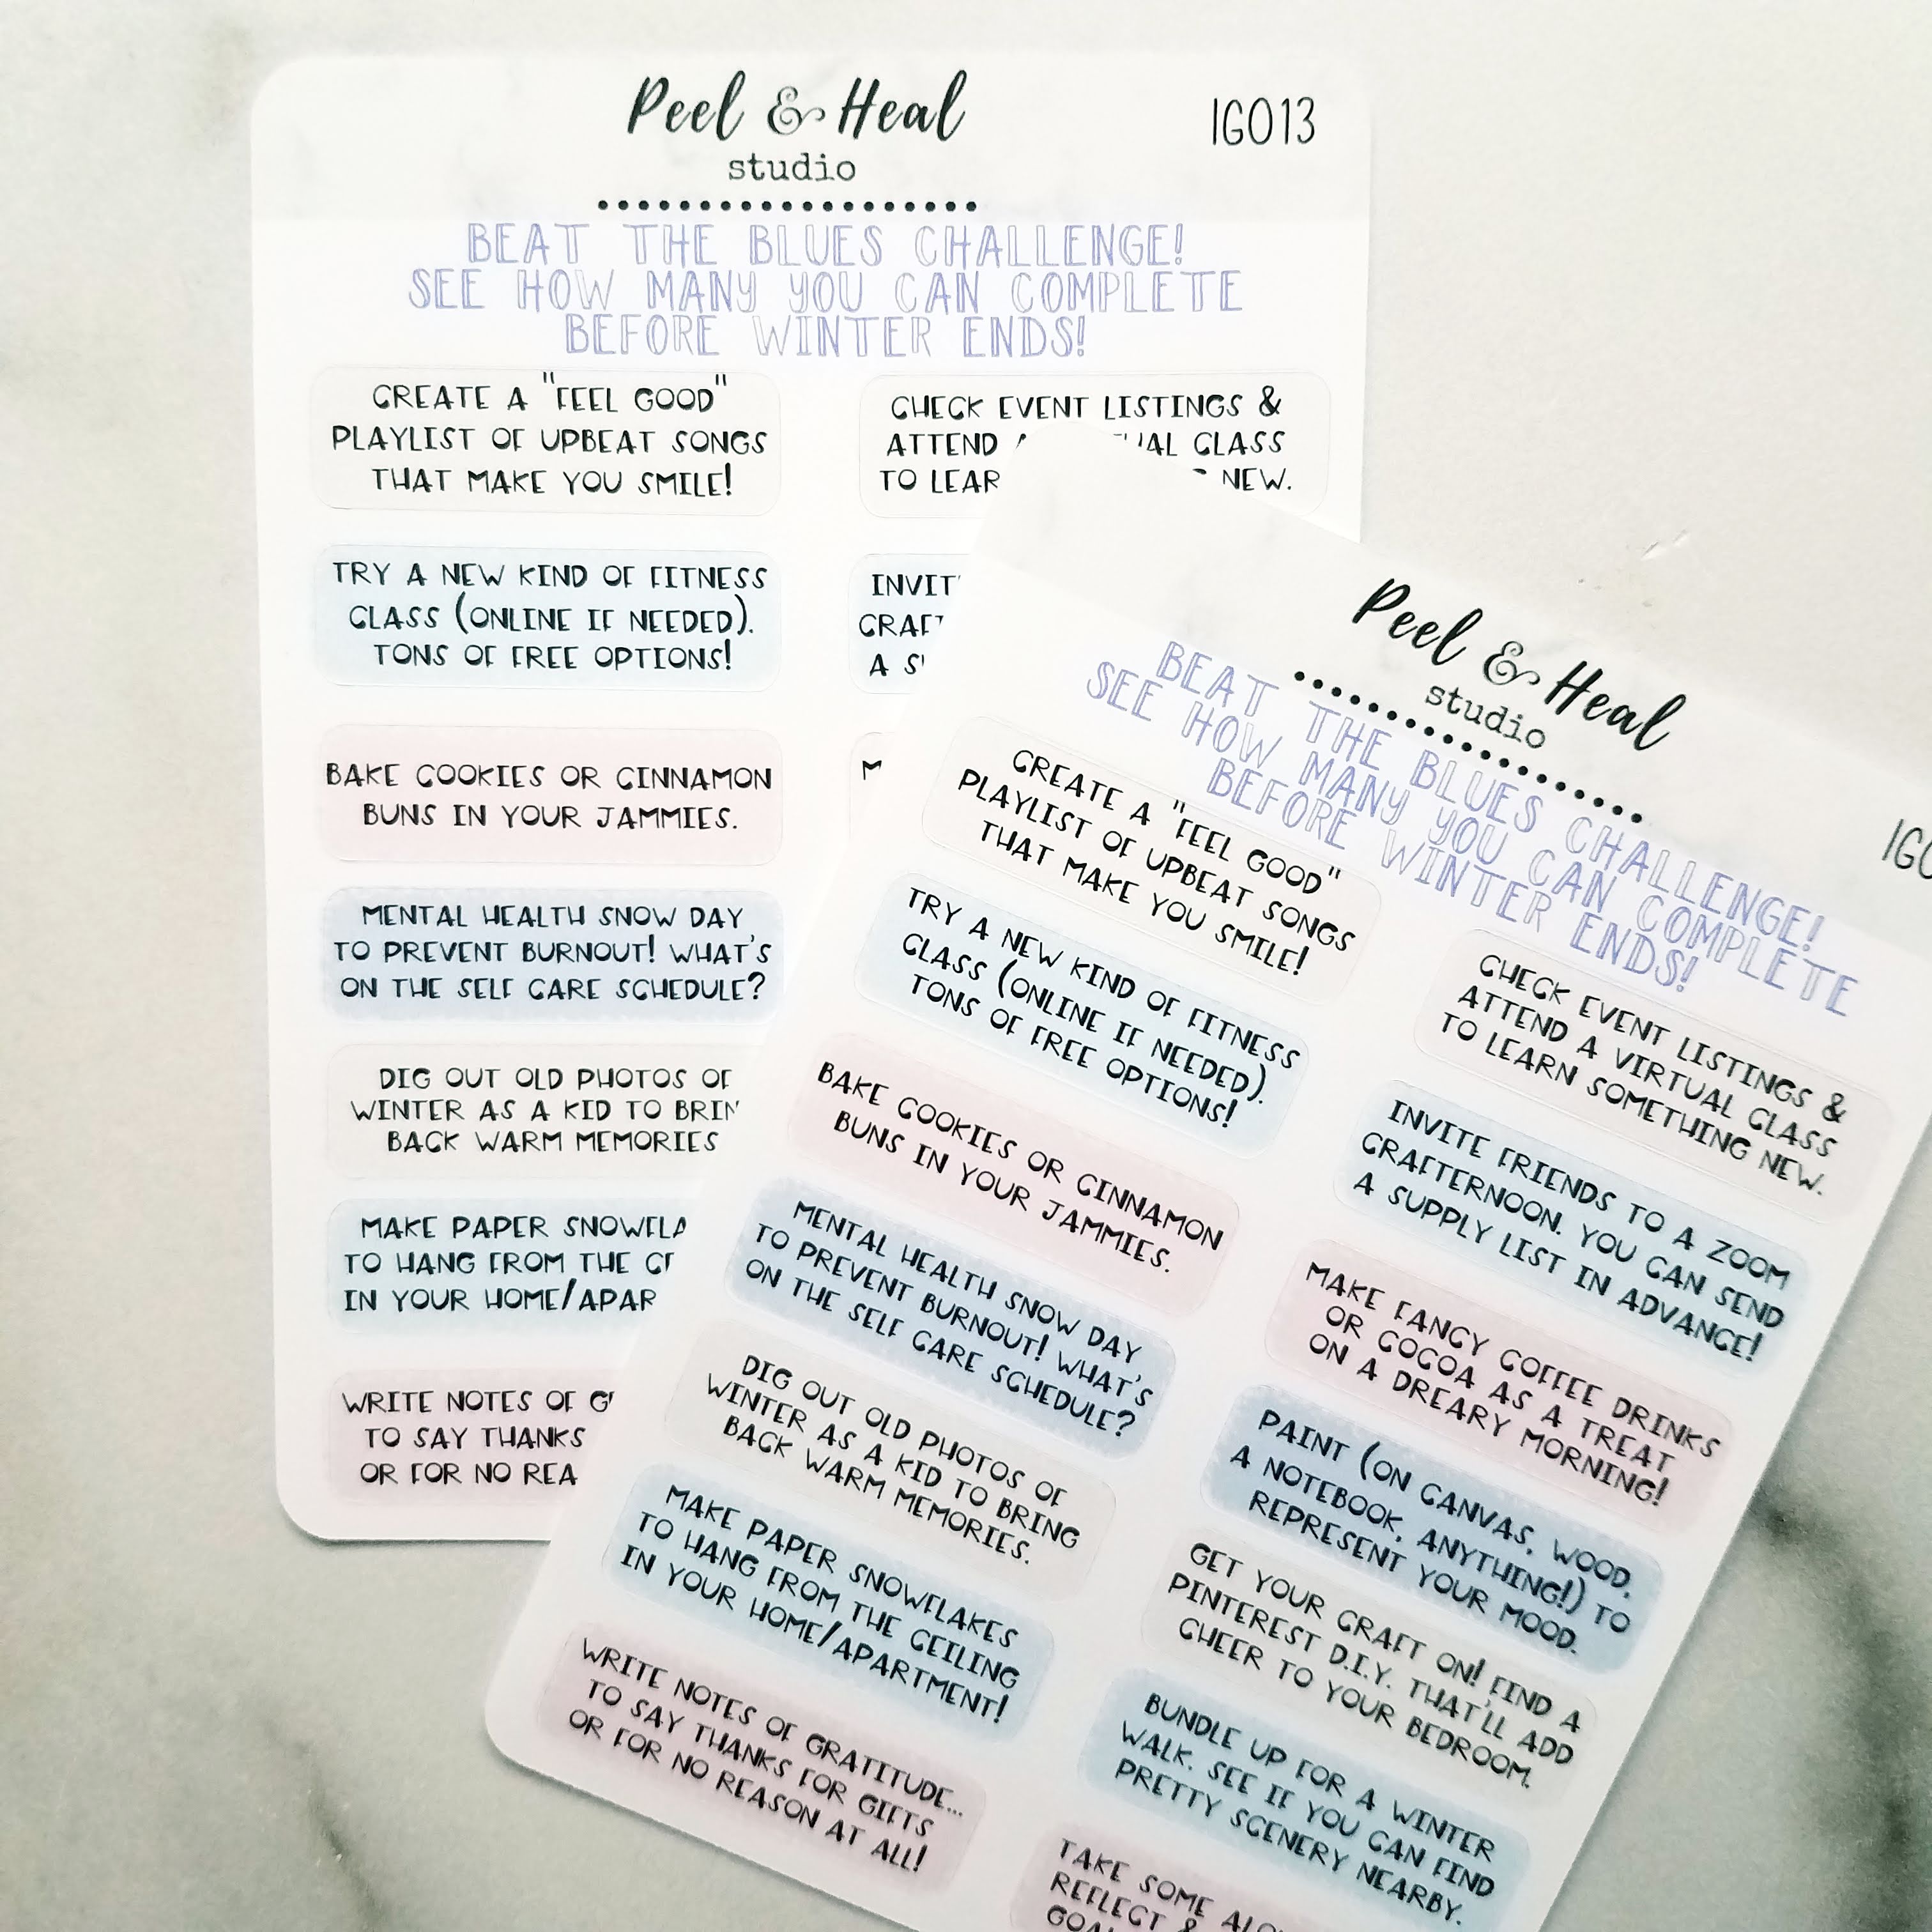 Peel & Heal
studio
IG013
BEAT THE BLUES CHALLENGE!
SEE HOW MANY YOU CAN COMPLETE
BEFORE WINTER ENDS!
CREATE A "FEEL GOOD"
PLAYLIST OF UPBEAT SONGS
THAT MAKE YOU SMILE!
CHECK EVENT LISTINGS &
ATTEND CLASS
TO NEW.
TRY A NEW KIND OF FITNESS
CLASS (ONLINE IF NEEDED).
TONS OF FREE OPTIONS!
A
BAKE COOKIES OR CINNAMON
BUNS IN YOUR JAMMIES.
MENTAL HEALTH SNOW DAY
TO PREVENT BURNOUT! WHAT'S
ON THE SELF CARE SCHEDULE?
DIG OUT OLD PHOTOS OF
WINTER AS A KID TO
BACK WARM MEMORIES
MAKE PAPER
TO HANG FROM THE
IN YOUR HOME/
WRITE NOTES OF
TO SAY THANKS
OR FOR NO
Peel & Heal
studio
BEAT THE BLUES CHALLENGE!
SEE HOW MANY YOU CAN COMPLETE
BEFORE WINTER ENDS!
CREATE A "FEEL GOOD"
PLAYLIST OF UPBEAT SONGS
THAT MAKE YOU SMILE!
TRY A NEW KIND OF FITNESS
CLASS (ONLINE IF NEEDED).
TONS OF FREE OPTIONS!
BAKE COOKIES OR CINNAMON
BUNS IN YOUR JAMMIES.
MENTAL HEALTH SNOW DAY
TO PREVENT BURNOUT! WHAT'S
ON THE SELF CARE SCHEDULE?
DIG OUT OLD PHOTOS OF
WINTER AS A KID TO BRING
BACK WARM MEMORIES.
MAKE PAPER SNOWFLAKES
TO HANG FROM THE CEILING
IN YOUR HOME/APARTMENT!
WRITE NOTES OF GRATITUDE...
TO SAY THANKS FOR GIFTS
OR FOR NO REASON AT ALL!
CHECK EVENT LISTINGS &
ATTEND A VIRTUAL CLASS
TO LEARN SOMETHING NEW.
INVITE FRIENDS TO A ZOOM
CRAFTERNOON. YOU CAN SEND
A SUPPLY LIST IN ADVANCE!
MAKE FANCY COFFEE DRINKS
OR COCOA AS A TREAT
ON A DREARY MORNING!
PAINT (ON CANVAS, WOOD,
A NOTEBOOK, ANYTHING!) TO
REPRESENT YOUR MOOD.
GET YOUR CRAFT ON! FIND A
PINTEREST D.I.Y. THAT'LL ADD
CHEER TO YOUR BEDROOM.
BUNDLE UP FOR A WINTER
WALK. SEE IF YOU CAN FIND
PRETTY SCENERY NEARBY.
TAKE SOME
REFLECT &